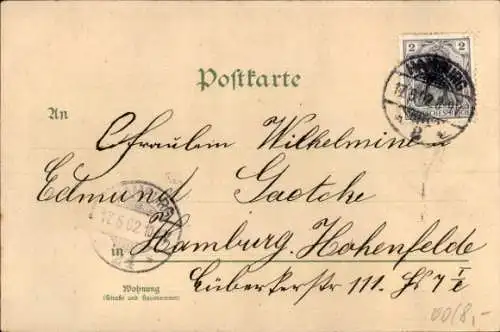 2 2
HAMBURG
17.5.02
2
Postkarte
An
Fräulein Wilhelmine
Edmund Gaetcke
HAMBURG
17.5.02
in Hamburg. Hohenfelde
Lübeckerstr 111. Hs 7 I
Wohnung
(Straße und Hausnummer)